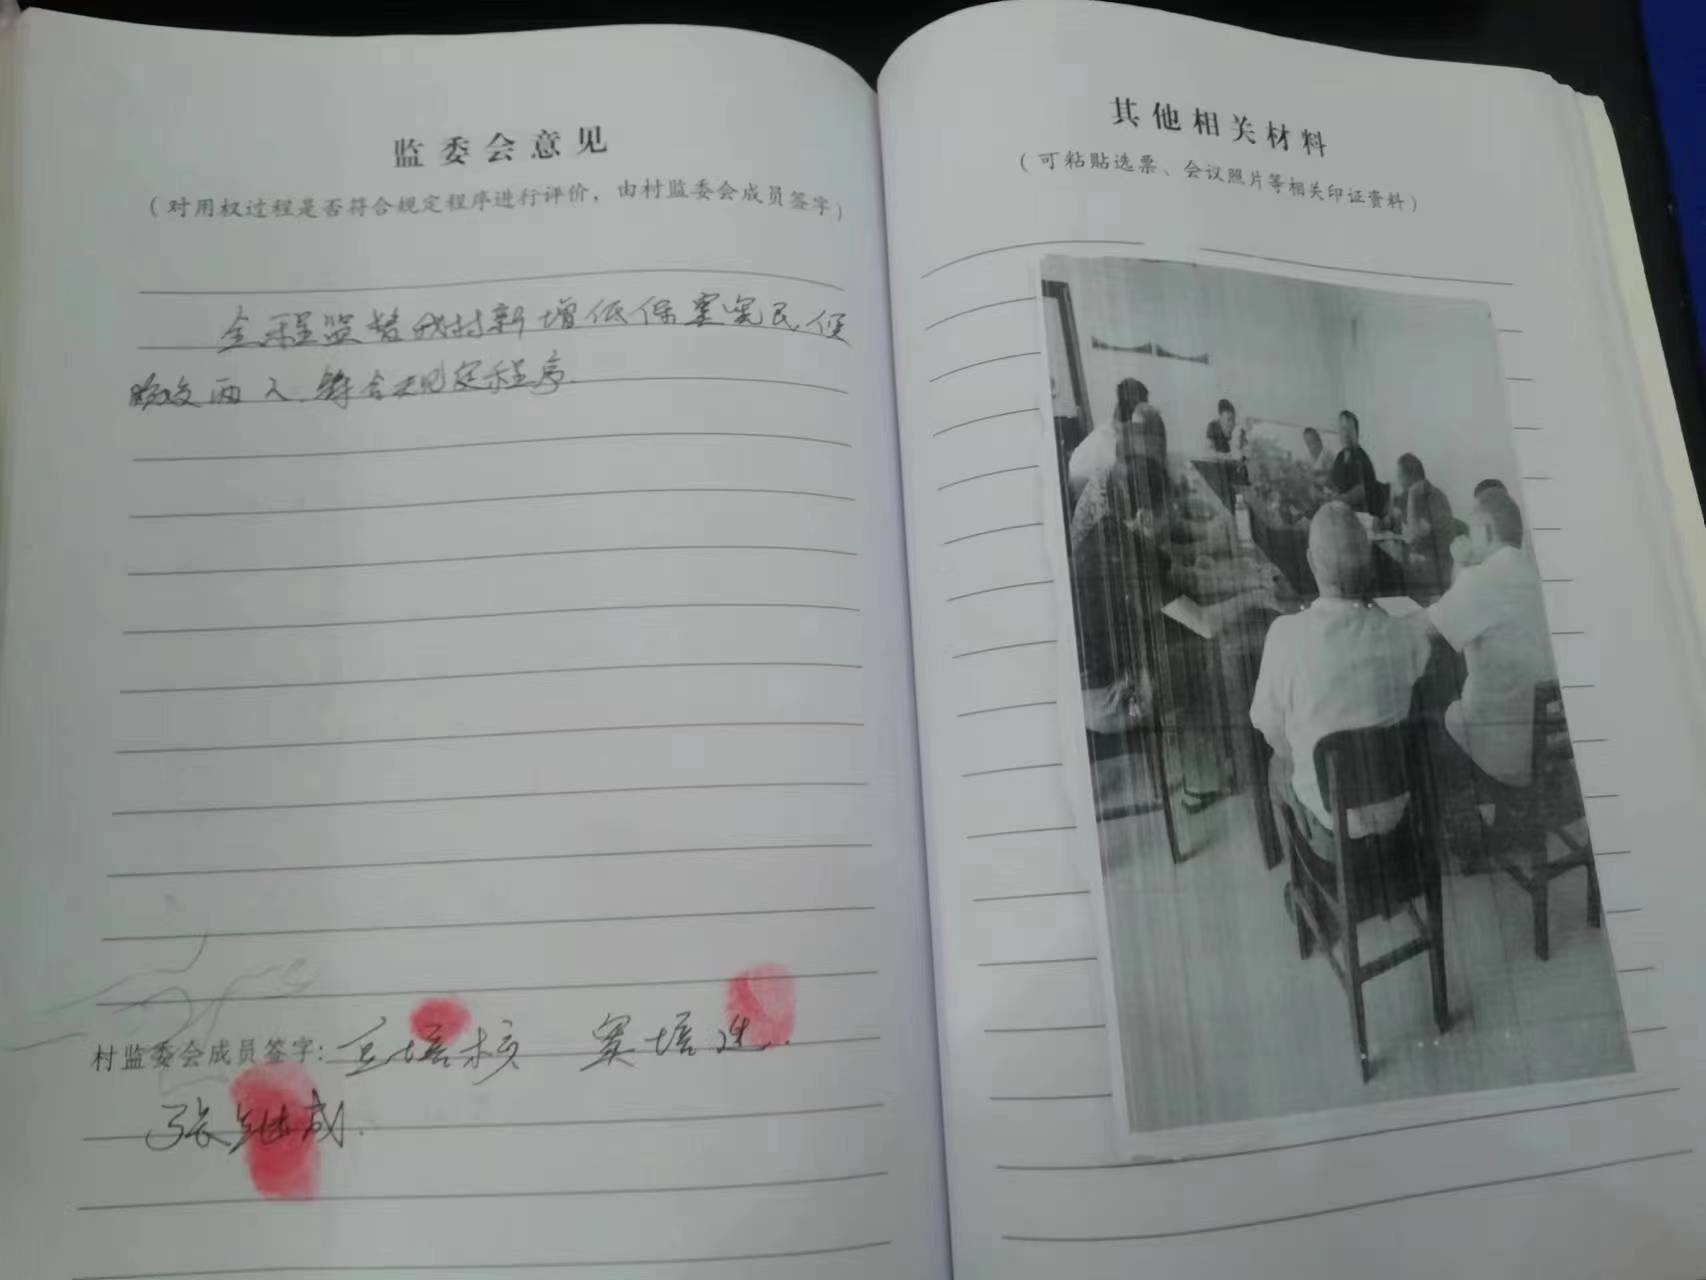 监委会意见
（对用权过程是否符合规定程序进行评价，由村监委会成员签字）
全程监督我村新增低保窦宪民、任
两人，符合规定程序.
村监委会成员签字：王培核 窦培进.
张继成.
其他相关材料
（可粘贴选票、会议照片等相关印证资料）